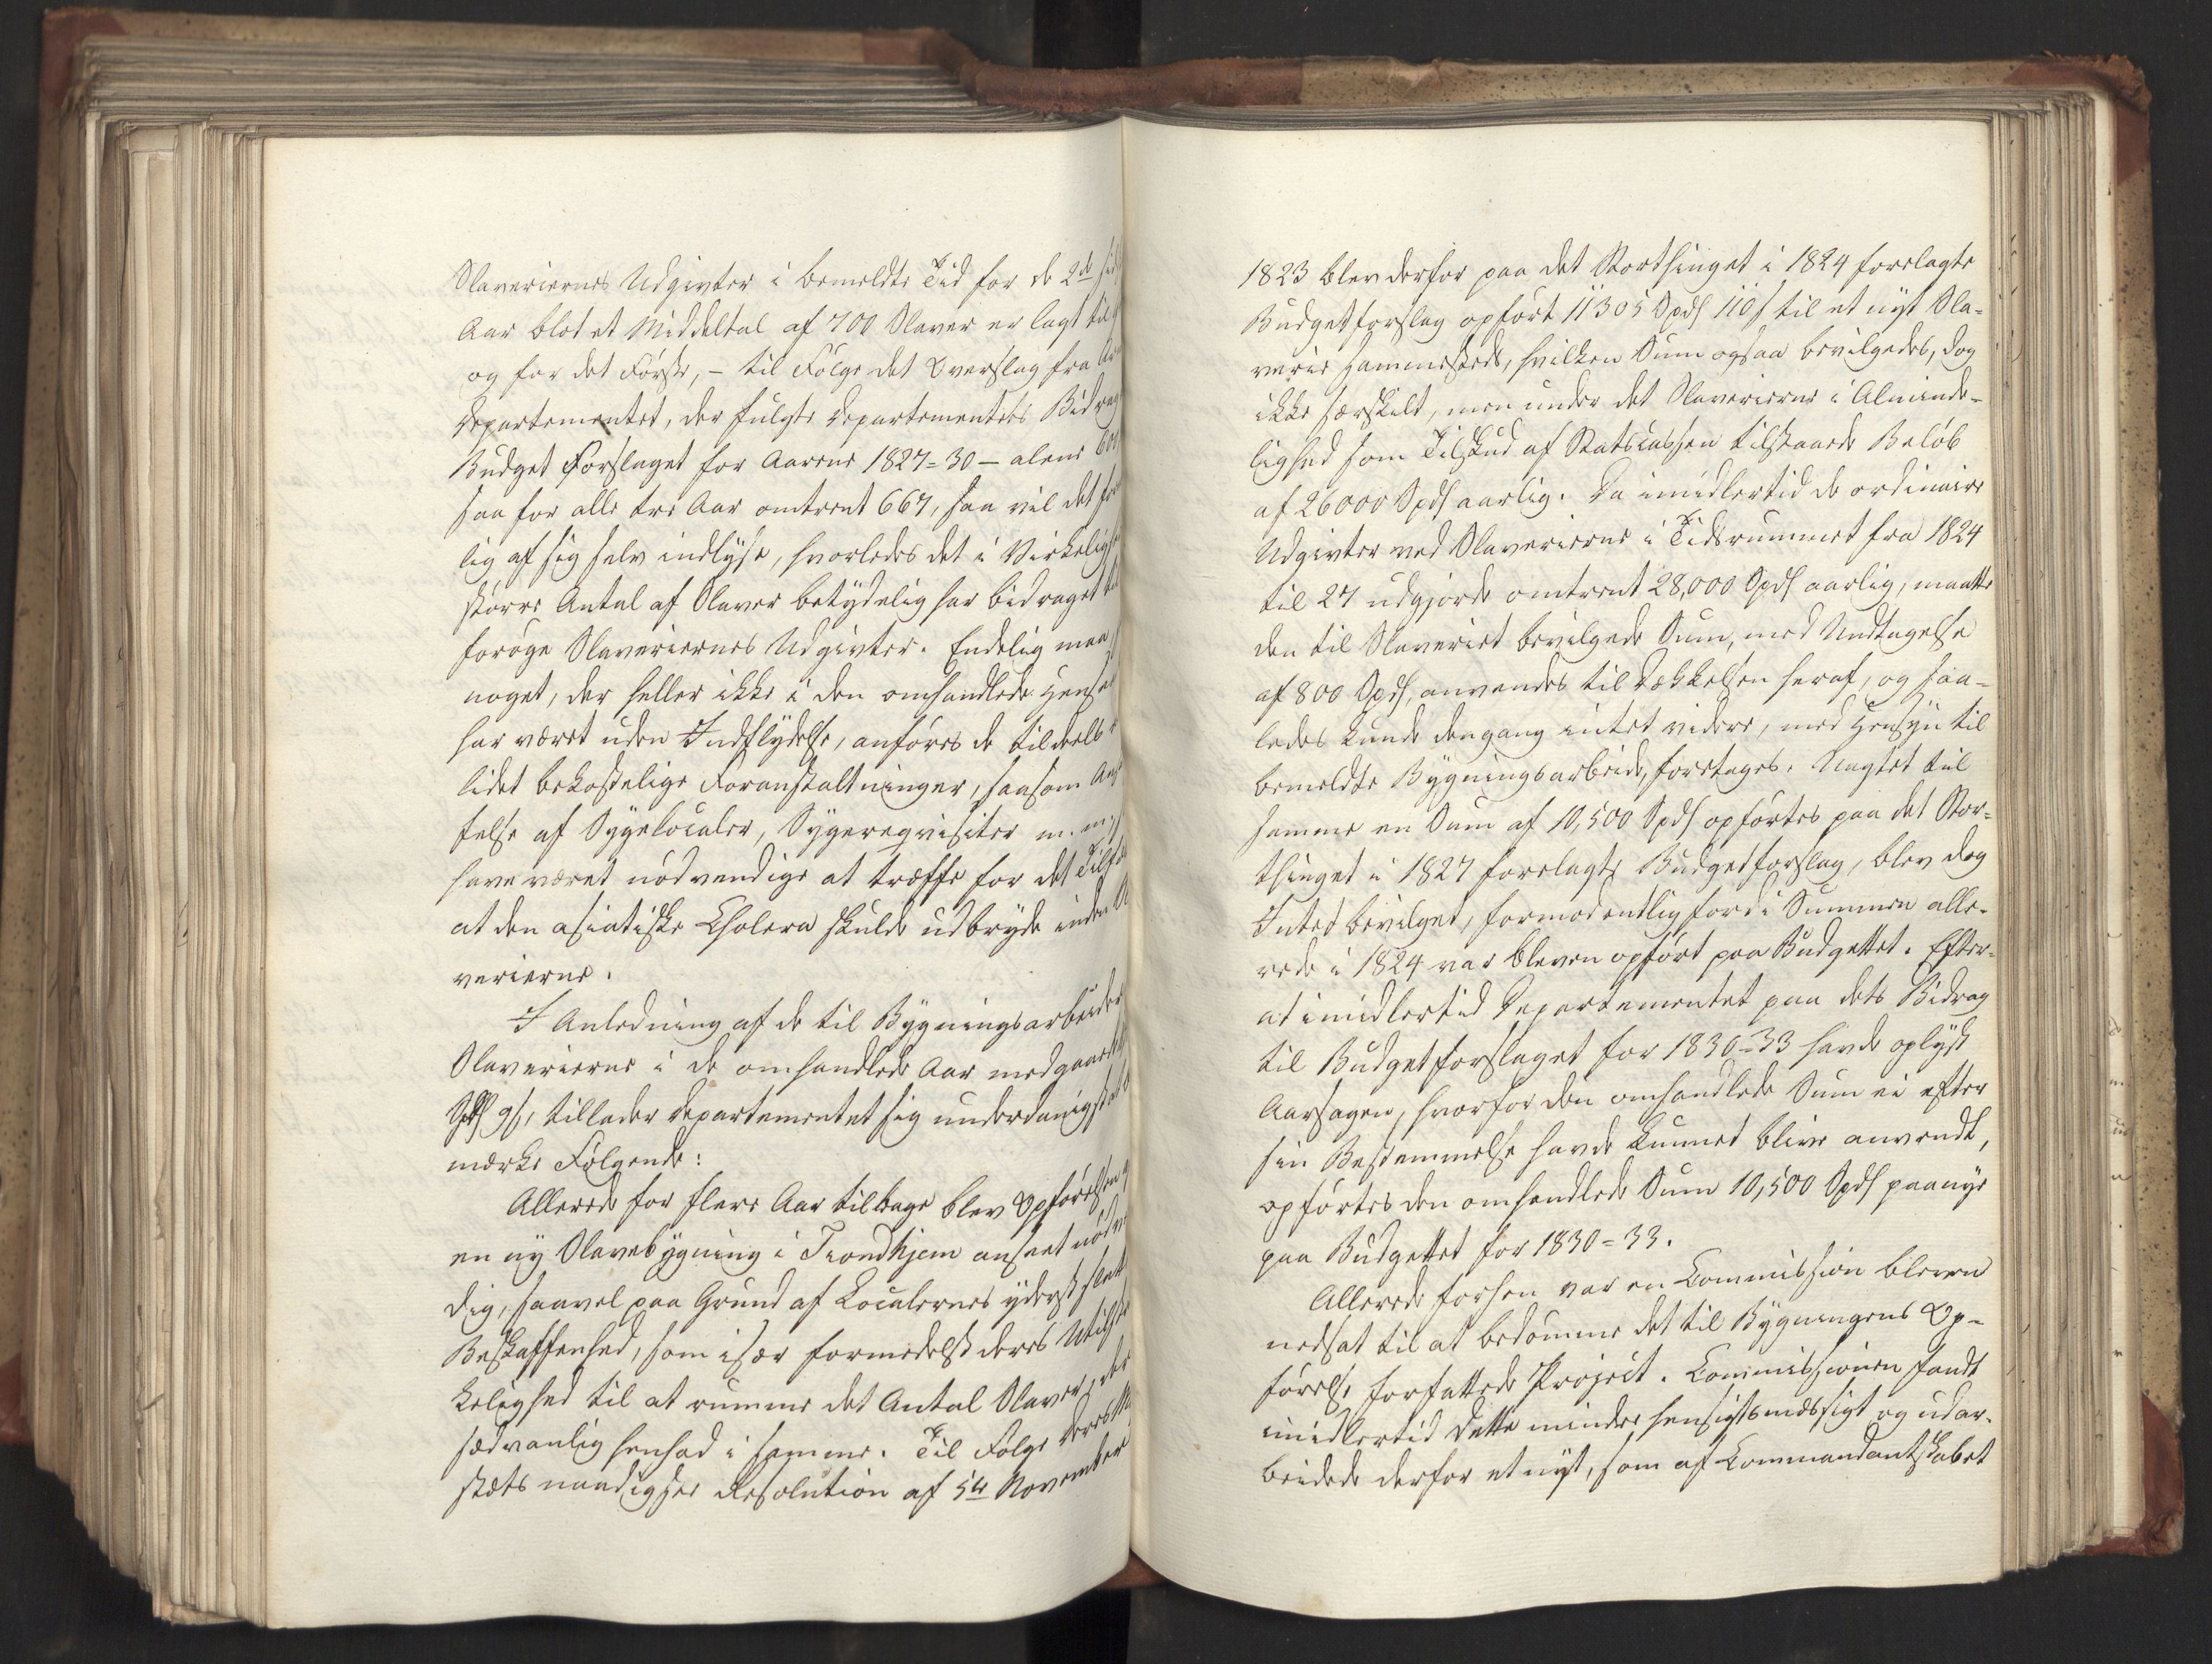 Slaveriernes Udgivter i bemeldte Tid for de 2de
Aar blot et Middeltal af 700 Slaver er lagt til
og for det Første, – til Følge det Overslag fra
Departementet, der fulgte Departementets Bidrag
Budget Forslaget for Aarene 1827=30 – alene
saa for alle tre Aar omtrent 667, saa vil det
lig af sig selv indlyse, hvorledes det i Virkelig
større Antal af Slaver betydelig har bidraget
forøge Slaveriernes Udgivter. Endelig maa
noget, der heller ikke i den omhandlede Hense
har været uden Indflydelse, anføres de tildeels
lidet bekostelige Foranstaltninger, saasom
felse af Sygelocaler, Sygereqvisiter m. m.,
have været nødvendige at træffe for det
at den asiatiske Cholera skulde udbryde inden
verierne.
I Anledning af de til Bygningsarbeider
Slaverierne i de omhandlede Aar medgaaede
Spd 9 s, tillader Departementet sig underdanigst
mærke Følgende:
Allerede for flere Aar tilbage blev Opførelsen
en ny Slavebygning i Trondhjem anseet nødv
dig, saavel paa Grund af Localernes yderst slette
Beskaffenhed, som især formedelst deres Utilstr
kelighed til at rumme det Antal Slaver, der
sædvanlig henhad i samme. Til Følge Deres
stæts naadigste Resolution af 5te November
1823 blev derfor paa det Storthinget i 1824 forelagte
Budgetforslag opført 11305 Spd 110 s til et nyt Sla-
verie sammesteds, hvilken Sum ogsaa bevilgedes, dog
ikke særskilt, men under det Slaverierne i Alminde-
lighed som Tilskud af Statscassen tilstaaede Beløb
af 26000 Spd aarlig. Da imidlertid de ordinaire
Udgivter ved Slaverierne i Tidsrummet fra 1824
til 27 udgjorde omtrent 28,000 Spd aarlig, maatte
den til Slaveriet bevilgede Sum, med Undtagelse
af 800 Spd, anvendes til Dækkelsen heraf, og saa-
ledes kunde dengang intet videre, med Hensyn til
bemeldte Bygningsarbeide, foretages. Uagtet til
samme en Sum af 10,500 Spd opførtes paa det Stor-
thinget i 1827 forelagte Budgetforslag, blev dog
Intet bevilget, formodentlig fordi Summen alle-
rede i 1824 var bleven opført paa Budgettet. Efter-
at imidlertid Departementet paa dets Bidrag
til Budgetforslaget for 1830=33 havde oplyst
Aarsagen, hvorfor den omhandlede Sum ei efter
sin Bestemmelse havde kunnet blive anvendt,
opførtes den omhandlede Sum 10,500 Spd paanye
paa Budgettet for 1830=33.
Allerede forhen var en Commission bleven
nedsat til at bedømme det til Bygningens Op-
førelse forfattede Project. Commissionen fandt
imidlertid dette mindre hensigtsmæssigt og udar-
beidede derfor et nyt, som af Commandantskabet